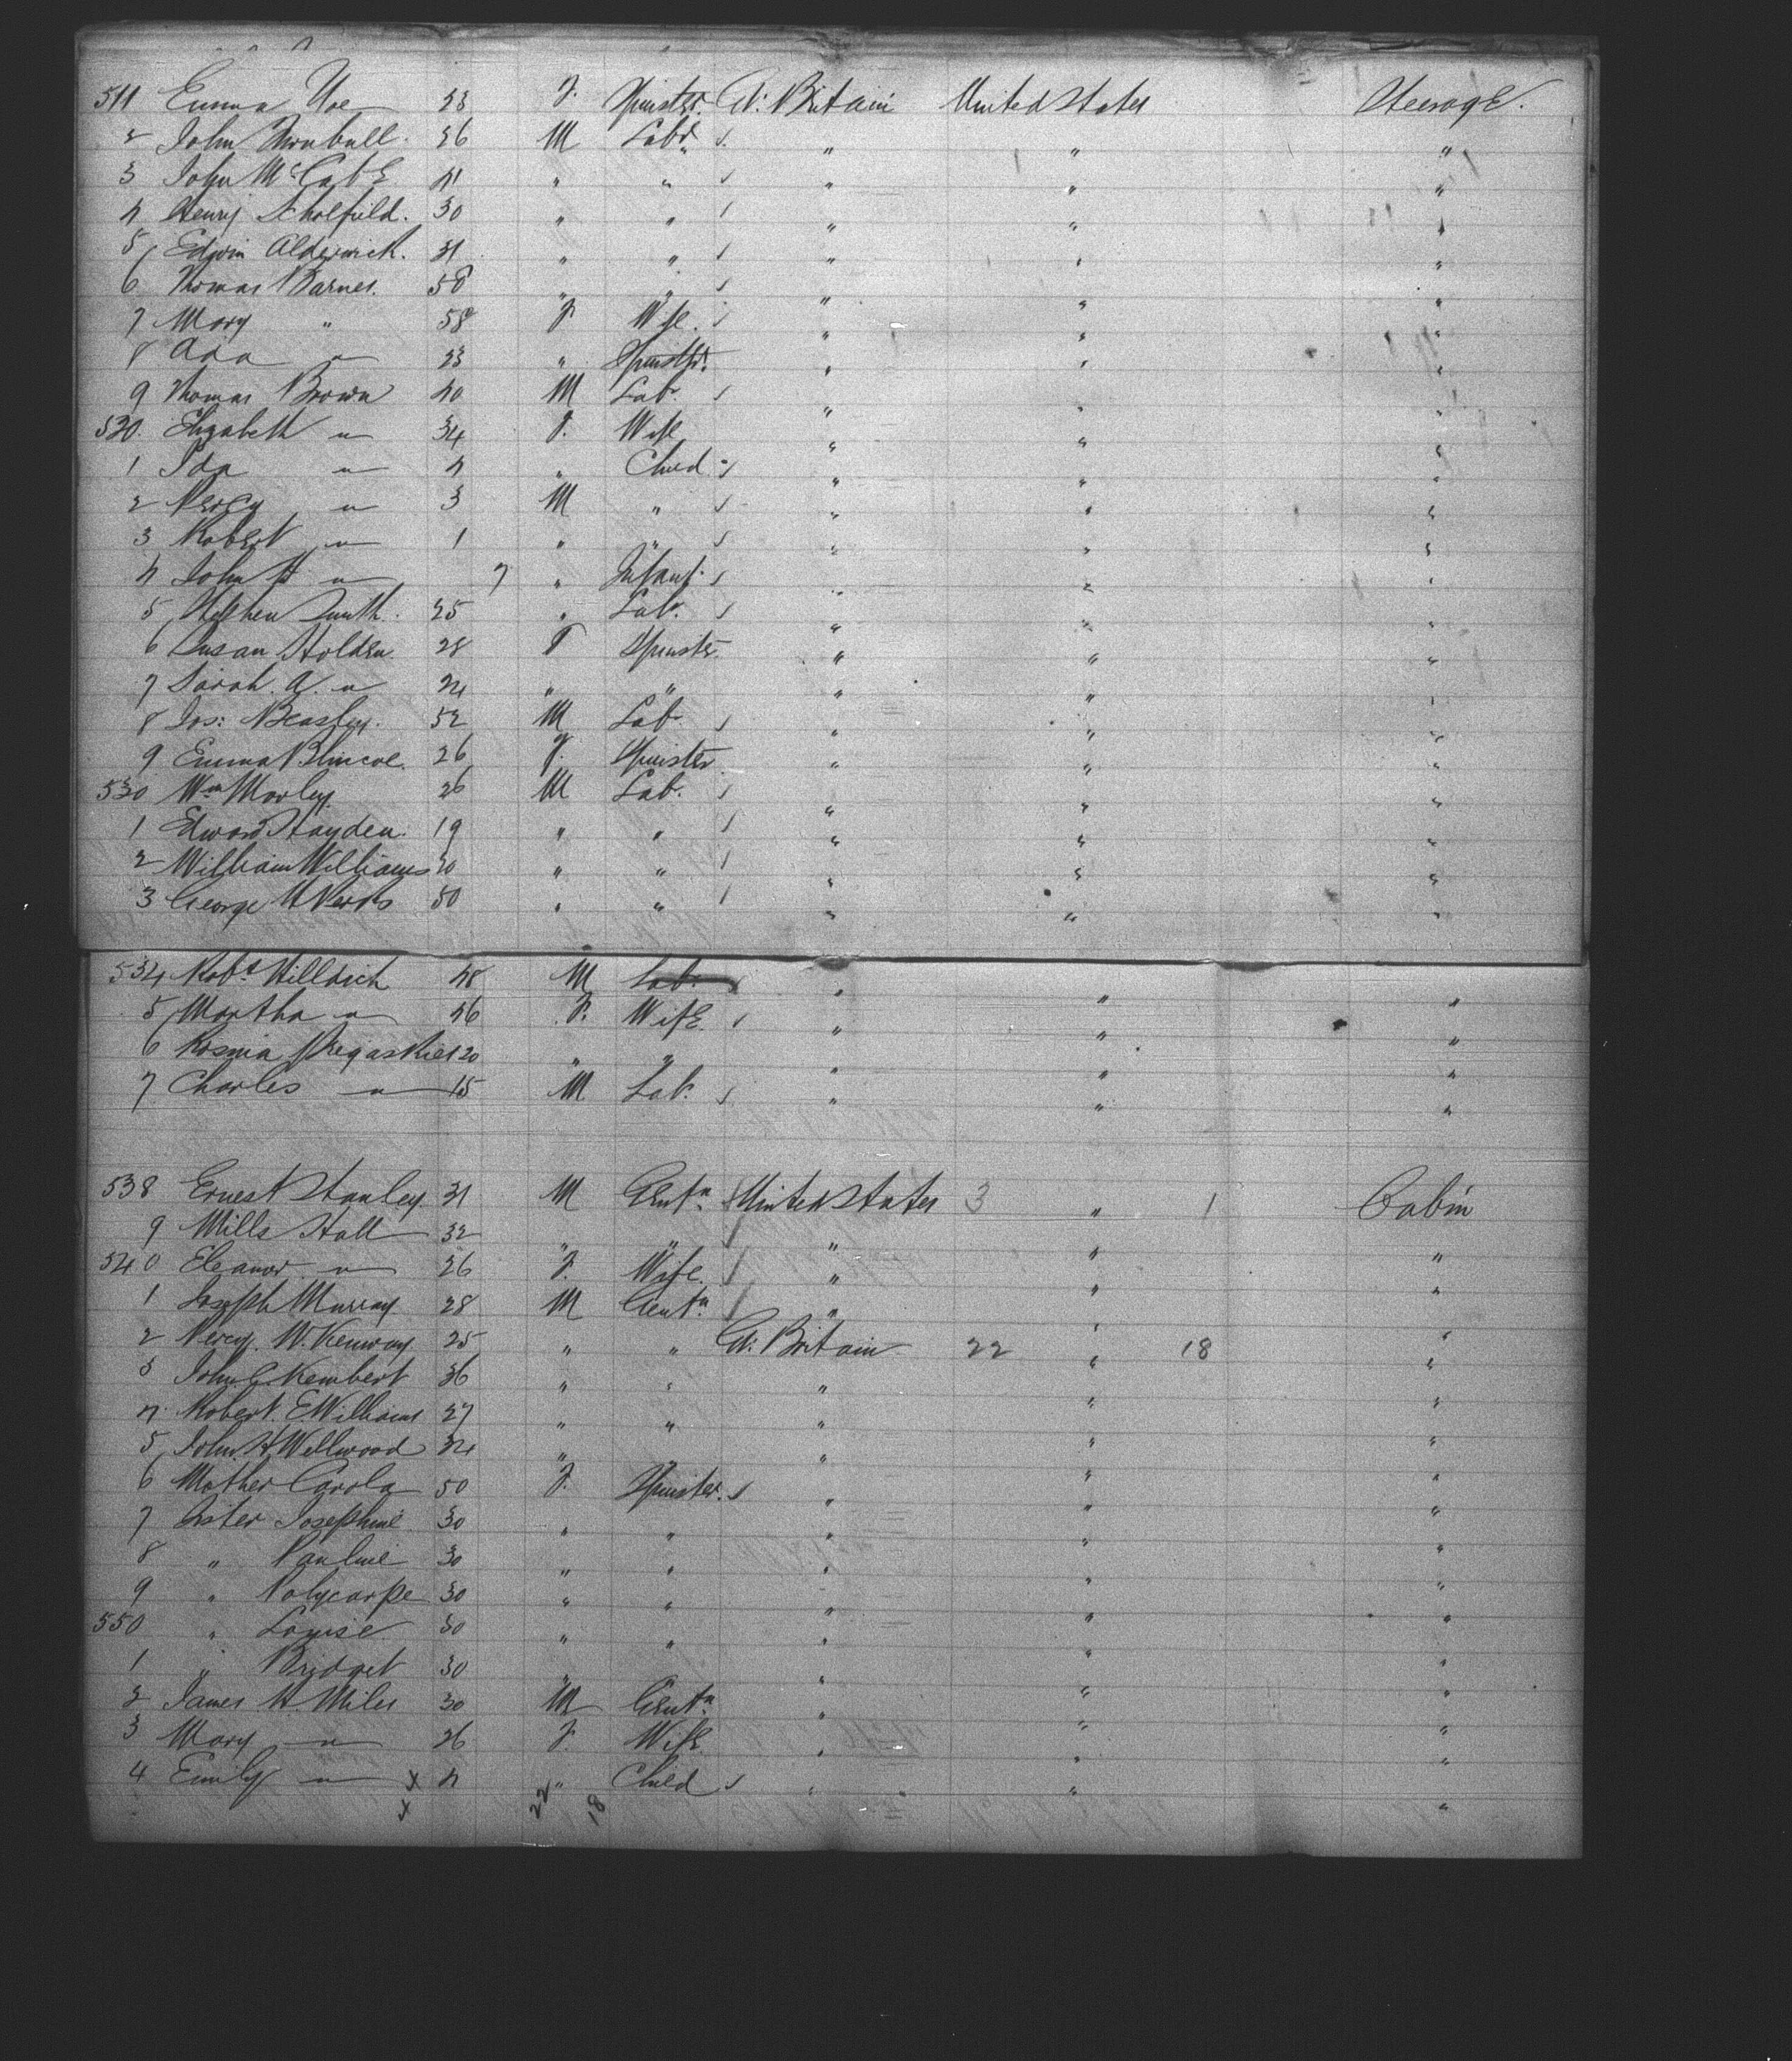 511 Emma Noe 23 F. Spinster Gt. Britain United States Steerage.
2 John Turnbull. 26 M Labr. " " "
3 John McCabe 41 " " " " "
4 Henry Scholfield. 30 " " " " "
5 Edwin Alderwick. 31 " " " " "
6 Thomas Barnes. 58 " " " " "
7 Mary " 58 F Wife. " " "
8 Ada " 23 " Spinstr. " " "
9 Thomas Brown 40 M Lab. " " "
520. Elizabeth " 34 F. Wife " " "
1 Ida " 4 " Child " " "
2 Percy " 3 M " " " "
3 Robert " 1 " " " " "
4 John H " 7 " Infant. " " "
5 Stephen Smith. 25 " Lab. " " "
6 Susan Holden. 28 F Spinster. " " "
7 Sarah. A. " 24 " " " " "
8 Jos: Beasley. 52 M Lab. " " "
9 Emma Blincoe. 26 F. Spinster " " "
530 Wm Morley. 26 M Lab. " " "
1 Edward Hayden. 19 " " " " "
2 William Williams 20 " " " " "
3 George H 50 " " " " "
534 Robt. Hilldrich 48 M Lab. " " "
5 Martha " 46 F. Wife. " " "
6 20 " " " " "
7 Charles " 15 M Lab. " " "
538 Ernest Stanley. 31 M Gentn. United States 3 " 1 Cabin
9 Mills Hall 32 " " " " "
540 Eleanor " 26 F. Wife. " " "
1 Joseph Murray. 28 M Gentn. " " "
2 Percy. W. Kenway. 25 " " Gt. Britain 22 " 18 "
3 John C. Kembert 36 " " " " "
4. Robert. E Williams 27 " " " " "
5 John. H Wellwood 34 " " " " "
6 Mother Carola 50 F. Spinster. " " "
7 Sister Josephine 30 " " " " "
8 " Pauline 30 " " " " "
9 " Polycarpe 30 " " " " "
550 " Louise 30 " " " " "
1 " Bridget 30 " " " " "
2 James H. Miles 30 M Gentn. " " "
3 Mary " 26 F. Wife. " " "
4 Emily " x 4 " Child " " "
x 22 18